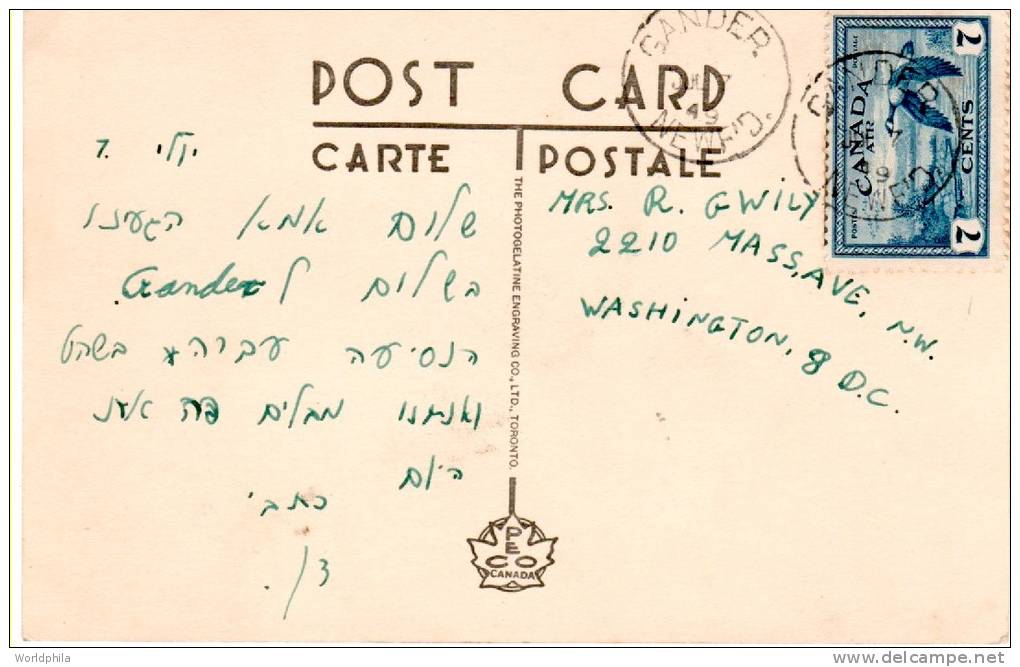 POST CARD
CARTE POSTALE
GANDER
JUL 7
49
NEWF'D.
POSTES POSTAGE
CANADA
AIR
7 CENTS 7
יולי 7.
שלום אמא הגענו
בשלום ל Gander.
הנסיעה עברה בשקט
ואנחנו מבלים פה
היום
כתבי
דן.
THE PHOTOGELATINE ENGRAVING CO., LTD., TORONTO.
MRS. R. GWILY
2210 MASS. AVE, N.W.
WASHINGTON, 8 D.C.
PECO
CANADA
Worldphila